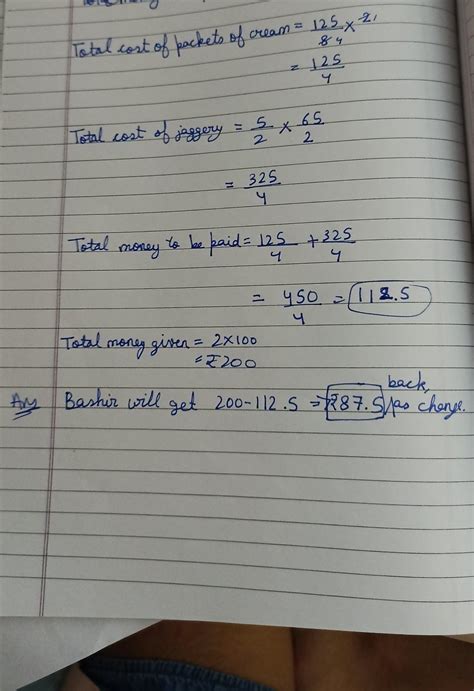 Total cost of packets of cream = 125/8 4 × 2 1
= 125/4
Total cost of jaggery = 5/2 × 65/2
= 325/4
Total money to be paid = 125/4 + 325/4
= 450/4 = 112.5
Total money given = 2×100
= ₹200
Ans Bashir will get 200-112.5 = ₹87.5 back as change.